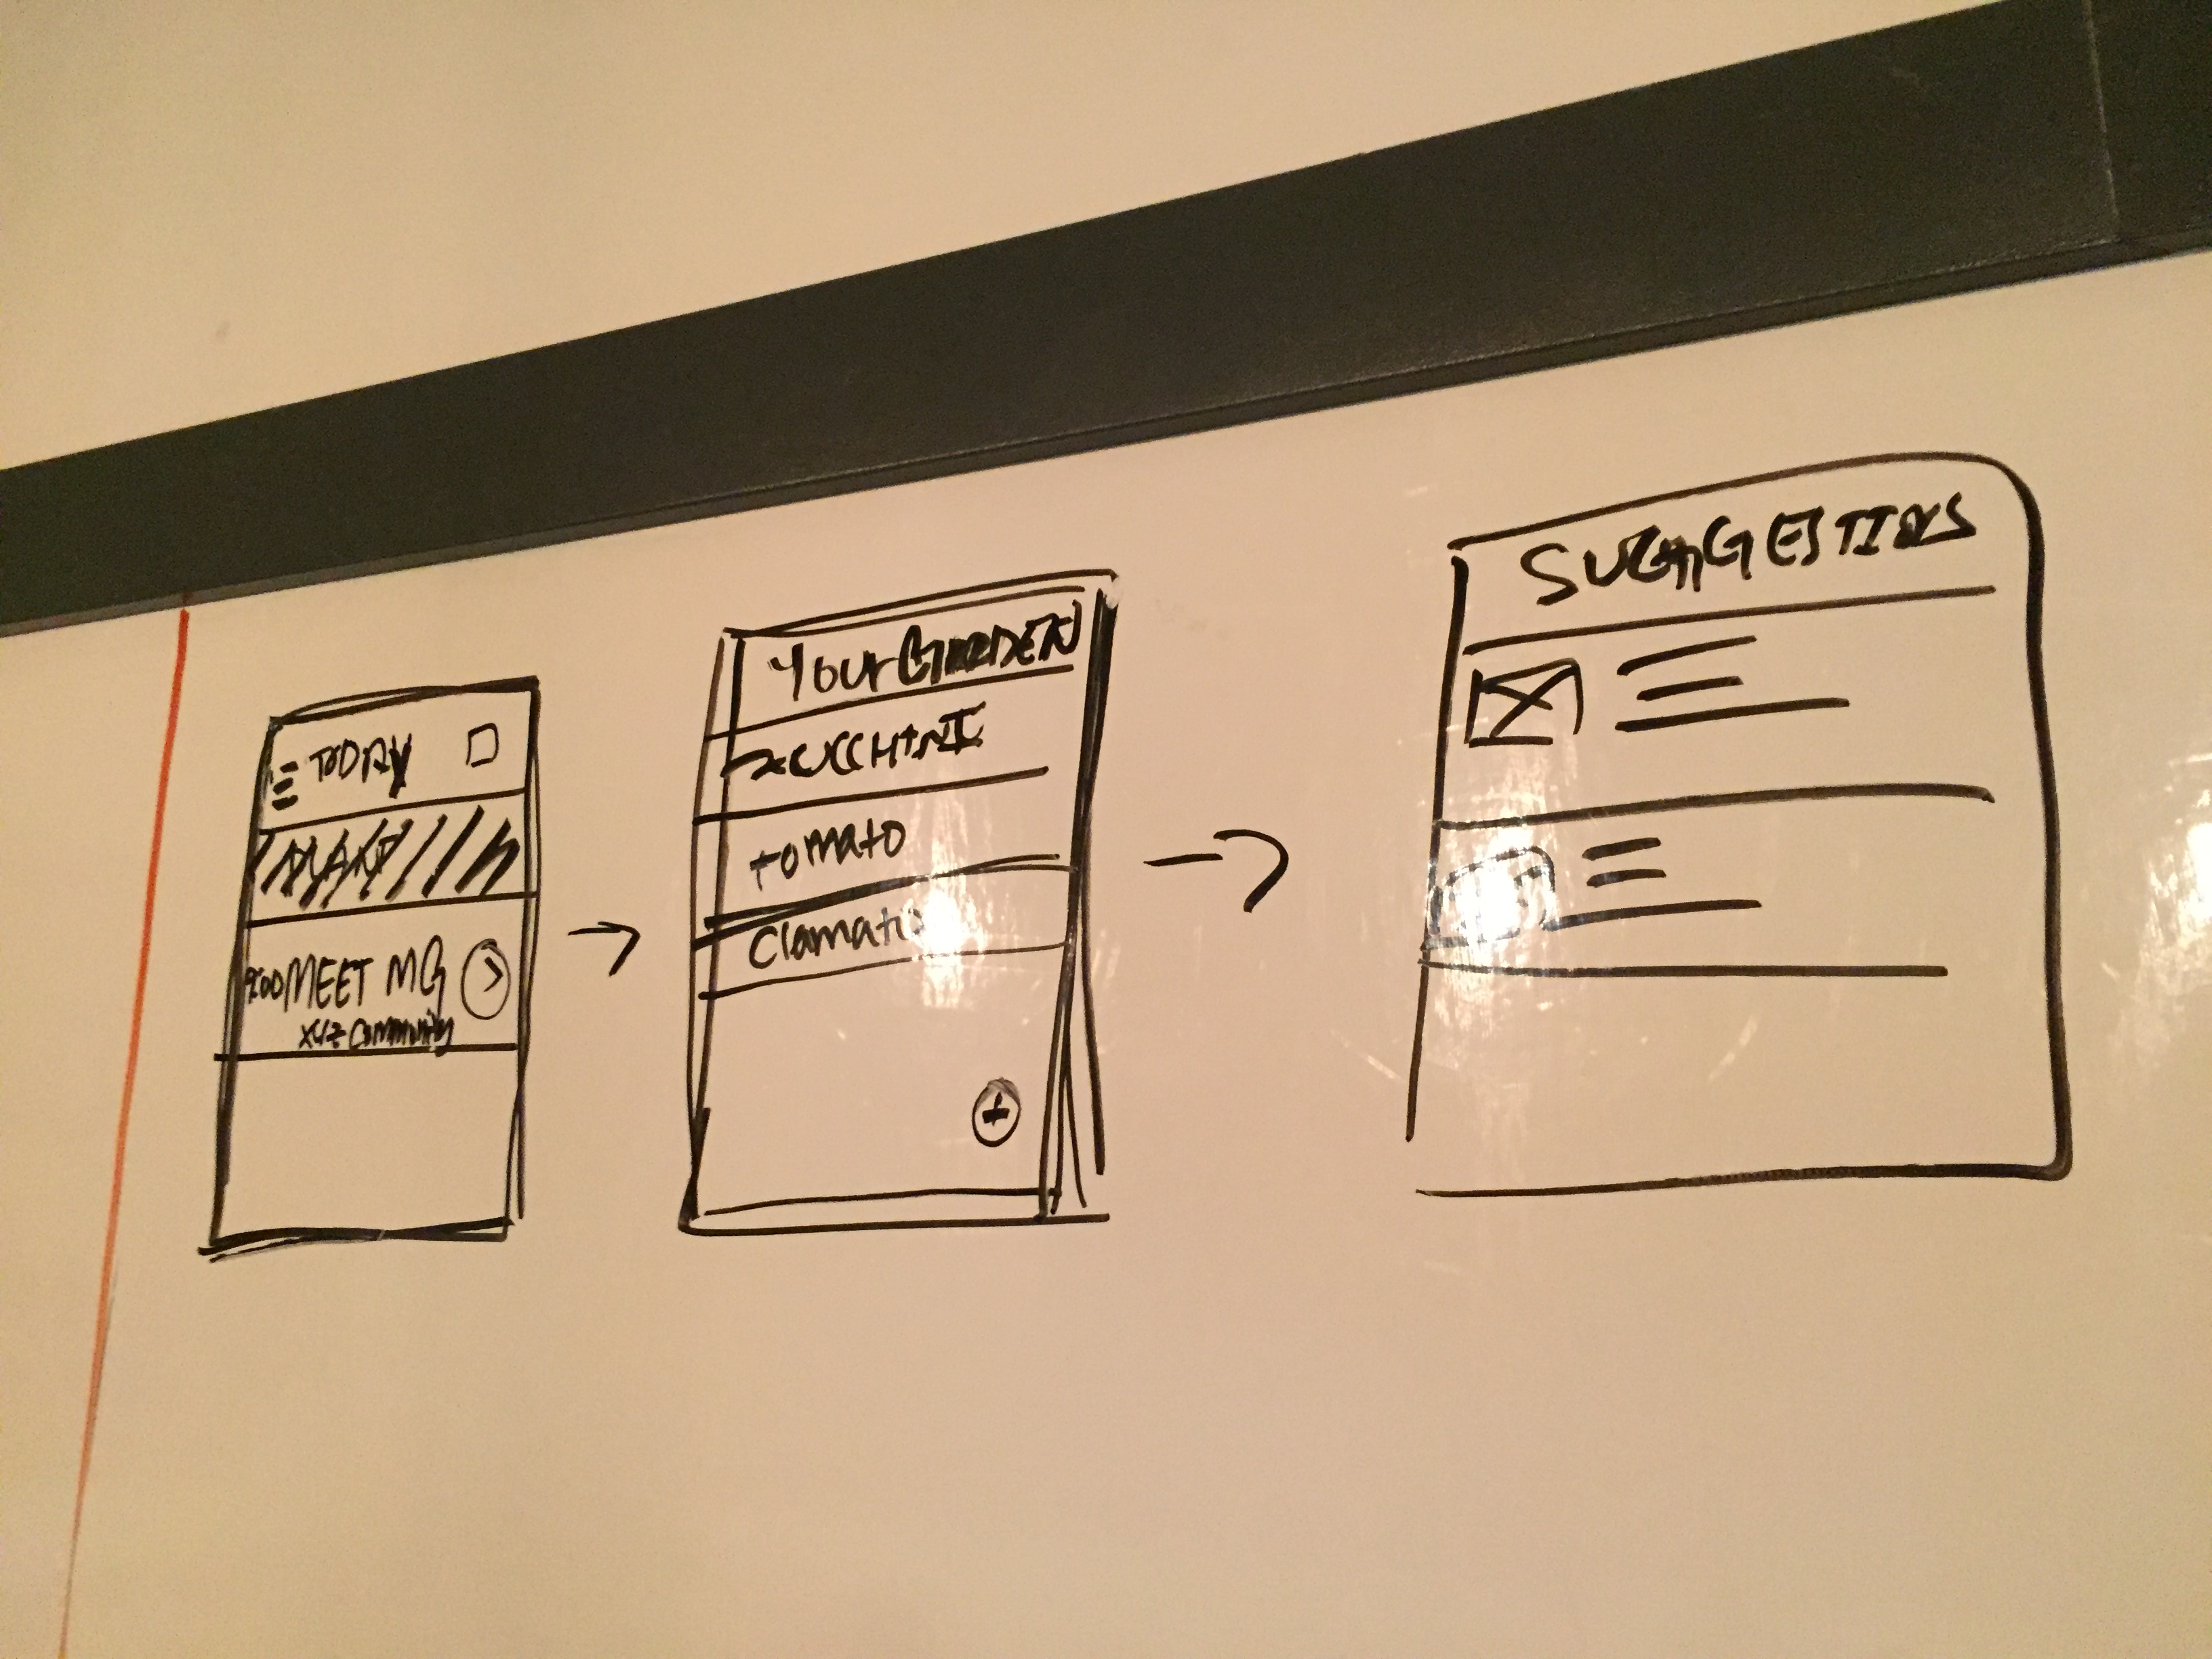 TODAY
MEET MG
XYZ Community
Your GARDEN
ZUCCHINI
tomato
Clamato
SUGGESTIONS